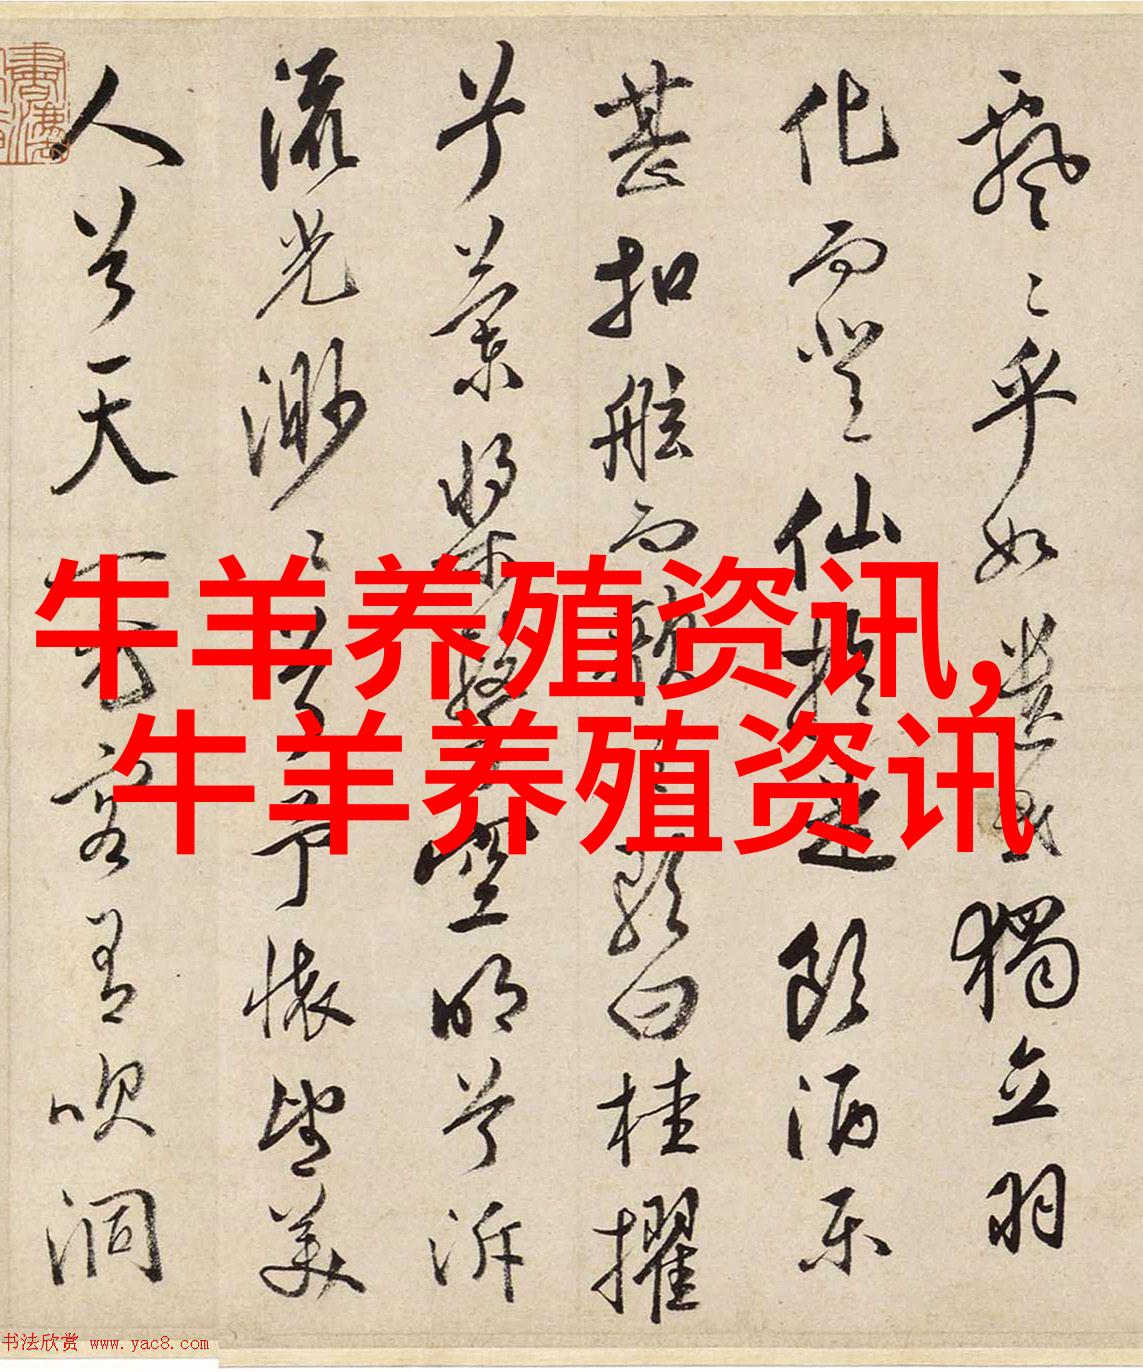 飘〻乎如遗世独立羽
化而登仙於是饮酒乐
甚扣舷而歌之歌曰桂擢
兮兰桨击空明兮泝
流光渺〻兮予怀望美
人兮天一方客有吹洞
牛羊养殖资讯,
牛羊养殖资讯
书法欣赏 www.yac8.com